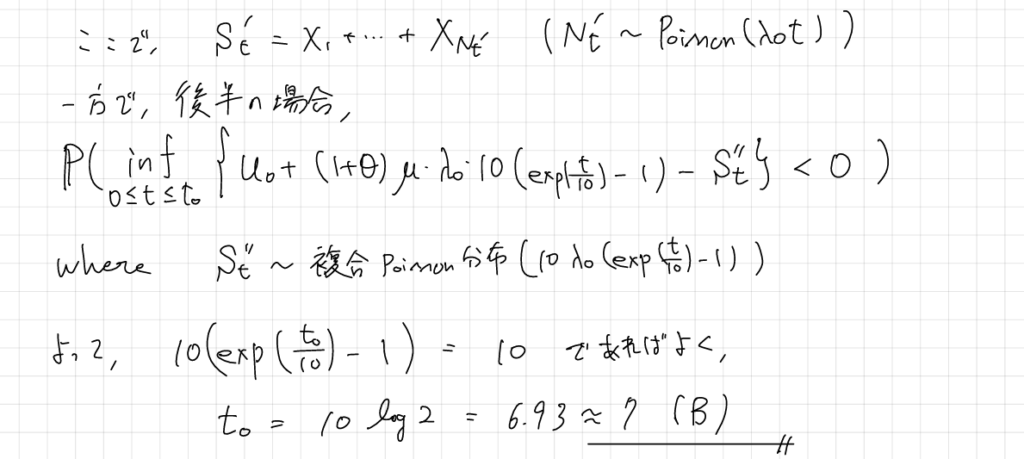 ここで, S't = X₁ + … + X_N't (N't ~ Poisson(λ₀t))
一方で, 後半の場合,
P( inf_{0≤t≤t₀} { u₀ + (1+θ) μ·λ₀·10 (exp(t/10) - 1) - S''t } < 0 )
where S''t ~ 複合Poisson分布 (10 λ₀ (exp(t/10) - 1))
よって, 10(exp(t₀/10) - 1) = 10 であればよく,
t₀ = 10 log 2 = 6.93 ≈ 7 (B)